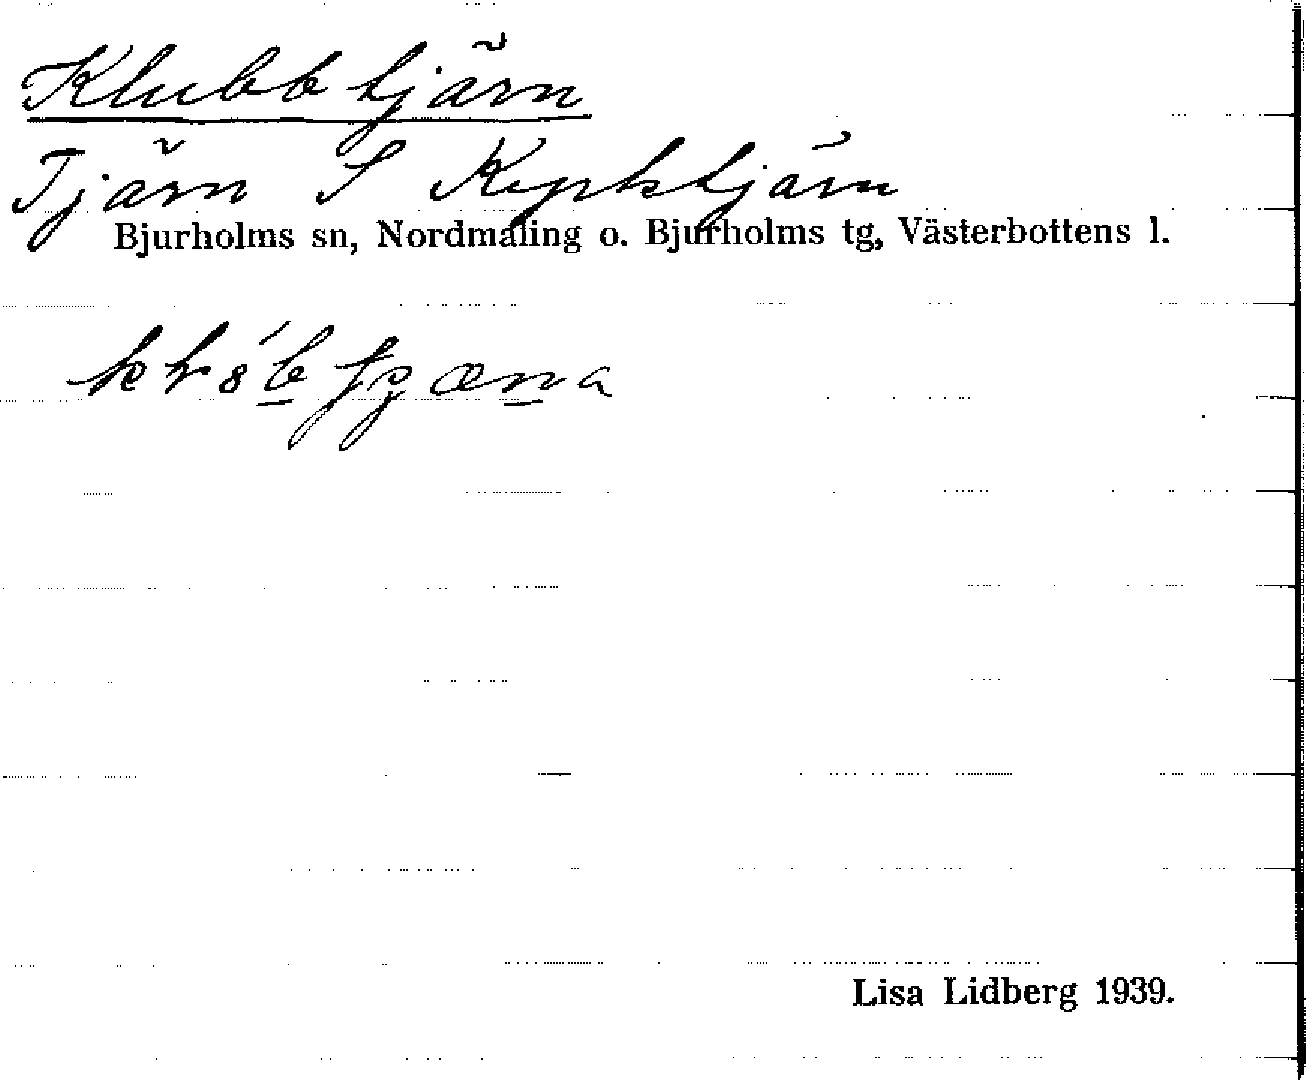 Klubbtjärn
Tjärn S Kypktjärn
Bjurholms sn, Nordmaling o. Bjurholms tg, Västerbottens l.
Lisa Lidberg 1939.